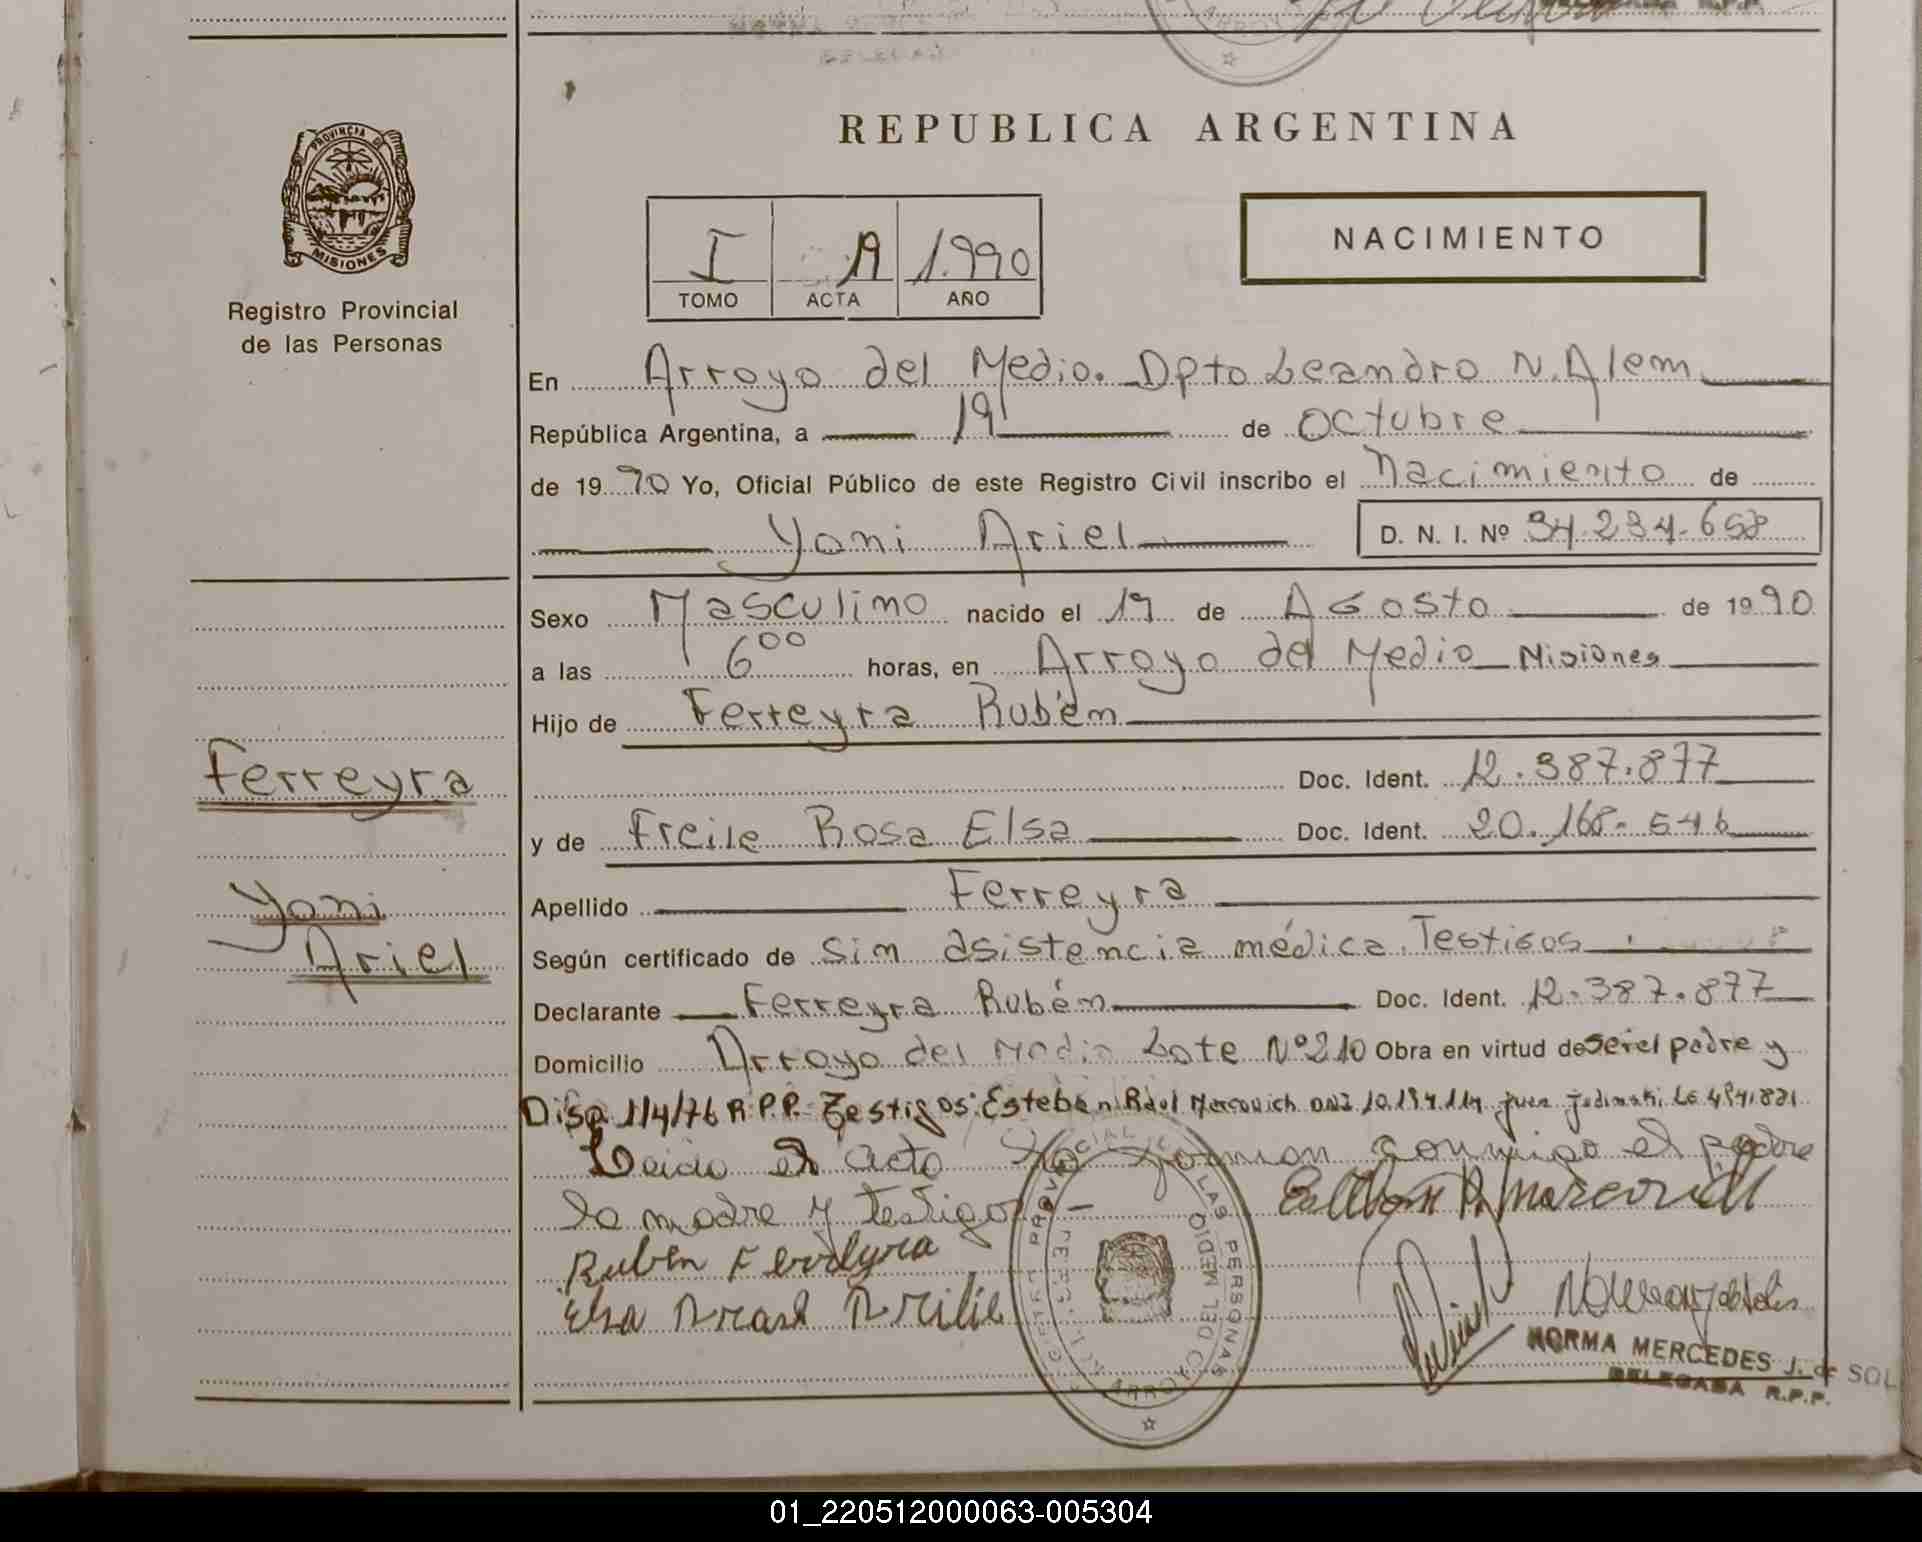 REPUBLICA ARGENTINA
PROVINCIA DE
MISIONES
Registro Provincial
de las Personas
I 19 1.990
TOMO ACTA AÑO
NACIMIENTO
En Arroyo del Medio. Dpto Leandro N. Alem
República Argentina, a 19 de Octubre
de 19 90 Yo, Oficial Público de este Registro Civil inscribo el Nacimiento de
Yoni Ariel D. N. I. Nº 34.234.658
Sexo Masculino nacido el 19 de Agosto de 19 90
a las 6 00 horas, en Arroyo del Medio Misiones
Hijo de Ferreyra Rubén
Doc. Ident. 12.387.877
y de Freile Rosa Elsa Doc. Ident. 20.168.546
Ferreyra
Yoni
Ariel
Apellido Ferreyra
Según certificado de sin asistencia médica. Testigos
Declarante Ferreyra Rubén Doc. Ident. 12.387.877
Domicilio Arroyo del Medio Lote Nº 210 Obra en virtud de ser el padre y
Disp 114/76 R.P.P. Testigos: Esteban Raúl Marcovich DNI 10.194.114
Leido el acta la firman conmigo el padre
la madre y testigos
Esteban R Marcovich
Ruben Ferreyra
Elsa
PERSONAS
ARROYO DEL MEDIO
NORMA MERCEDES J. de SOL
DELEGADA R.P.P.
01_220512000063-005304